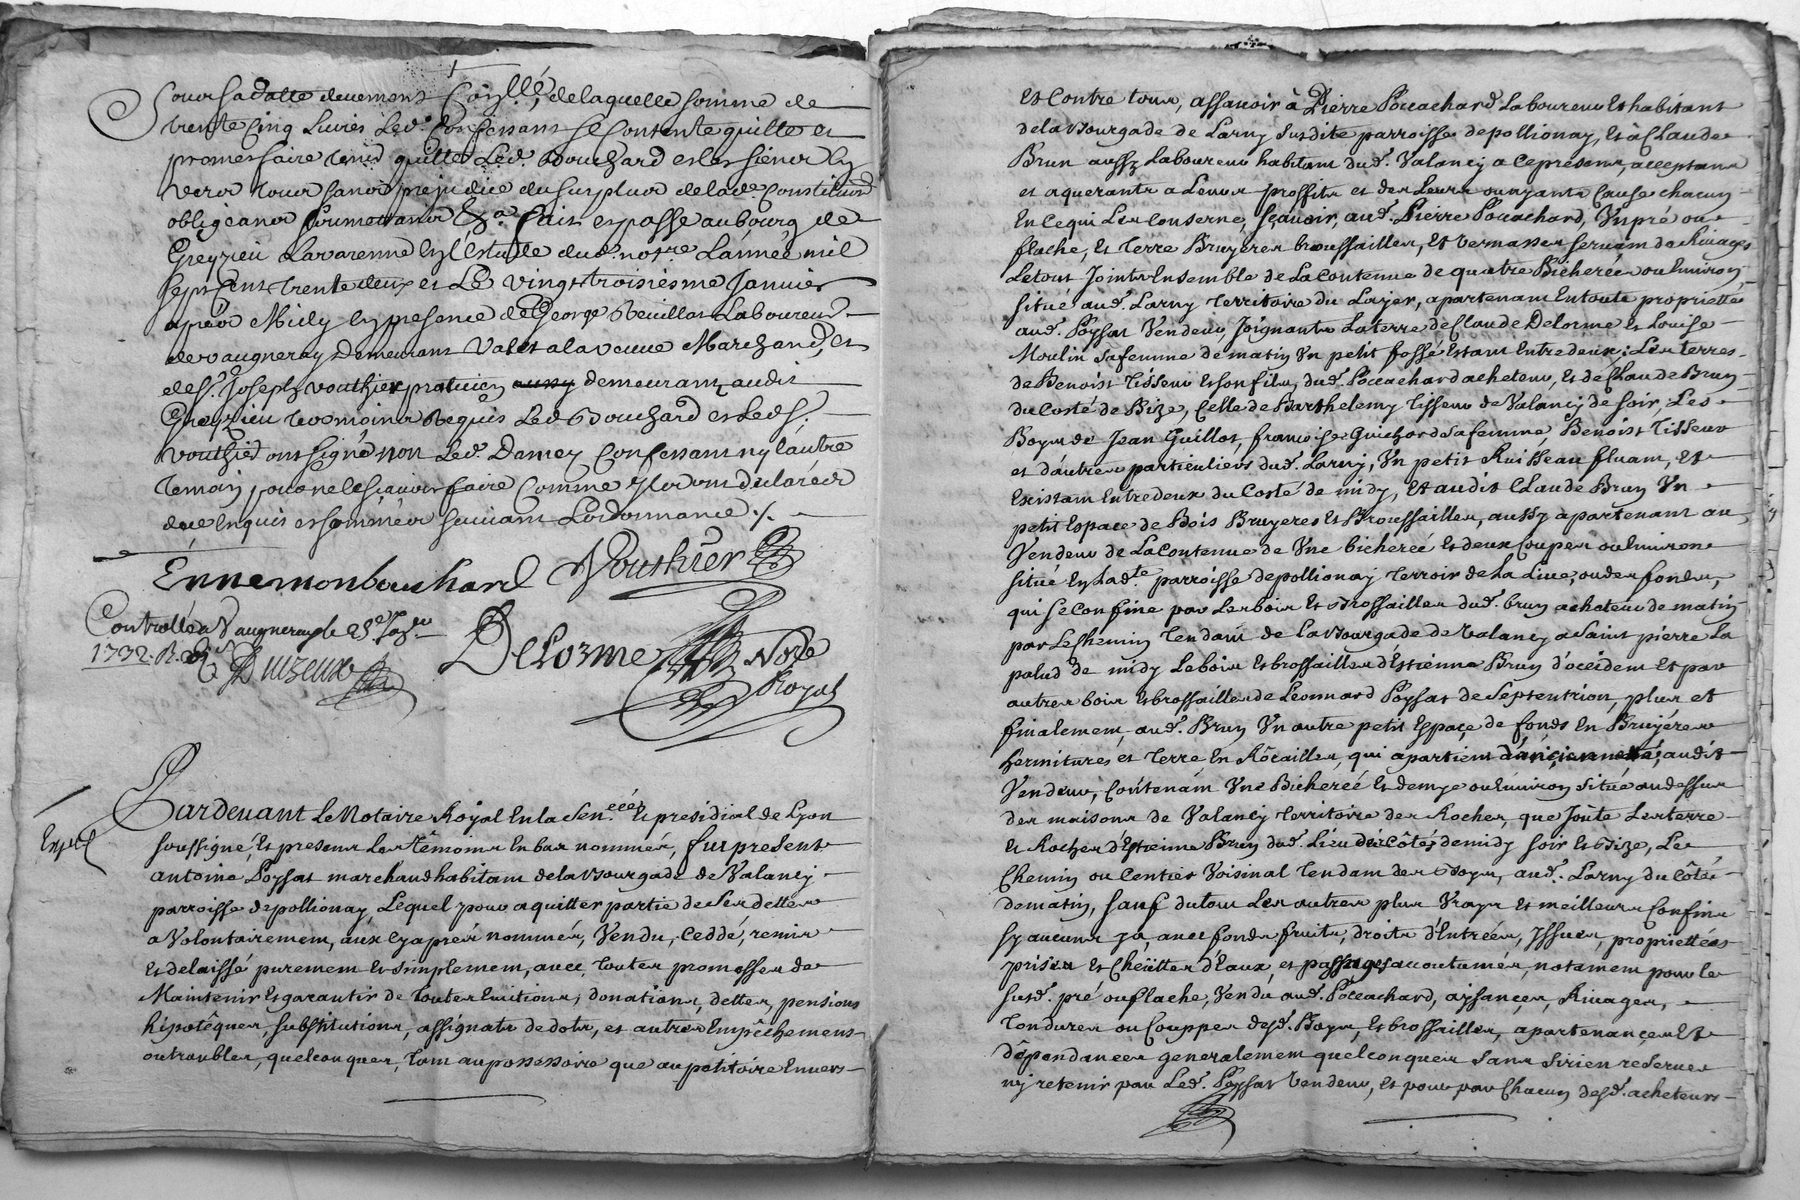 pour sa datte deuement Conllé, de laquelle somme de
trente Cinq Livres Led. Confessant se Contente quitte et
promet faire tenir quitte Led. Bouchard et les siens Ey
vers tous sans prejudice du surplus de lad. Constitution
obligeance soumettance &a. fait et passé au bourg de
Greyzieu Lavarenne Eyl Estude dud. notre. L'année mil
sept Cent trente deux et Le vingt troisiesme Janvier
apres Midy Ey presence de George Reuillot Laboureur
de vaugneray Demeurant Valet a la veuve Marchand, et
de Sr. Joseph vouthier praticien aussy demeurant audit
Greyzieu temoins Requis Led Bouchard et Led S.
vouthier ont signé non Led. Damey Confessant ny l'autre
temoin pour ne le sçavoir faire Comme ils ont declarés
de ce Enquis et sommés suivant L'ordonnance ./.
Ennemonbouchard Vouthier
Controllé a Vaugneray le 25e Janer
1732. R.
Duzeux
Delorme Nore
Royal
Expé
Pardevant Le Notaire Royal En la Sen.ccée Et presidial de Lyon
soussigné, Et presens Les têmoins En bas nommés, fut present
antoine Poyfat marchand habitant de la Bourgade de Valancy
parroisse de pollionay, Lequel pour aquitter partie de Ses dettes
a Volontairement, aux Cy aprés nommés, Vendu, Ceddé, remis
Et delaissé purement Et simplement, avec toutes promesses de
Maintenir Et garantir de toutes Evictions, donations, dettes, pensions
hipotêques, substitutions, assignats de dots, et autres Empêchemens
ou troubles, quelconques, tant au possessoire que au petitoire Envers
Et Contre tous, assavoir à Pierre Poccachard Laboureur Et habitant
de la Bourgade de Larny susdite parroisse de pollionay, Et à Claude
Brun aussy Laboureur habitant dud. Valancy a Ce presens, acceptans
et aquerants a Leurs proffits et des Leurs ou ayants Cause chacun
En Ce qui Les Conserne, Sçavoir, aud. Pierre Poccachard, Un pré ou
flache, Et terre Bruyeres broussailles, Et vernasses servant de Rivages
Le tout Joints Ensemble de La Contenue de quatre Bicherées ou Environ
situé aud. Larny territoire du Layer, apartenant En toute proprietté
aud. Poyfat Vendeur, Joignants La terre de Claude Delorme Et Louise
Moulin sa femme de matin Un petit fossé Estant Entredeux; Les terres
de Benoist Tisseur Et son fils, dud. Poccachard acheteur, Et de Claude Brun
du Costé de Bize, Celle de Barthelemy Tisseur de Valancy de soir, Les
Boys de Jean Guillot, françoise Guichord sa femme, Benoist Tisseur
et d'autres particuliers dud. Larny, Un petit Ruisseau fluant, Et
Existant Entredeux du Costé de midy, Et audit Claude Brun Un
petit Espace de Bois Bruyeres Et Broussailles, aussy apartenant au
Vendeur de La Contenue de Une bicherée Et deux Coupes ou Environ
situé En Lad.te parroisse de pollionay terroir de La Live, ou des fonds,
qui se Confine par Les bois Et brossailles dud. brun acheteur de matin
par Le Chemin tendant de La Bourgade de Valancy a Saint pierre La
palud de midy Le bois Et brossailles d'Estienne Brun d'occident Et par
autres bois Et brossailles de Leonnard Poyfat de Septentrion, plus et
finalement, aud. Brun Un autre petit Espace de fonds En Bruyéres
hermitures et terre En Rôcailles, qui apartient d'anciennété, audit
Vendeur, Contenant Une Bicherée Et demye ou Environ situé au dessus
des maisons de Valancy territoire des Roches, que Joûte Les terre
Et Rocher d'Estienne Brun dud. Lieu des Côtés de midy soir Et Bize, Le
Chemin ou Centier Voisinal tendant des Boys, aud. Larny du Côté
de matin, sauf du tout Les autres plus Vrays Et meilleurs Confins
sy aucuns y a, avec fonds fruits, droits d'Entrées, Issues, propriettées
prises Et Cheüttes d'Eaux, et passages accoutumés, notament pour le
susd. pré ou flache, Vendu aud. Poccachard, aysances, Rivages,
tondures ou Couppes desd. Boys, Et brossailles, apartenances Et
dépendances generalement quelconques sans s'y rien reserver
ny retenir par Led. Poyfat Vendeur, Et pour par Chacun desd. acheteurs